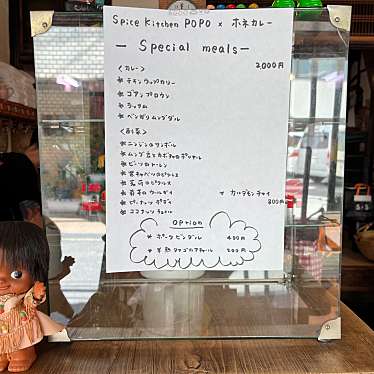 Spice Kitchen POPO × ホネカレー
— Special meals —
〈カレー〉 2,000円
* チキンウップカリー
* ゴアンプロウン
* ラッサム
* ベンガリムングダル
〈副菜〉
* ニンジンのサンボル
* ムング豆とカボチャの
* ビーツのトーレン
* 紫キャベツのピクルス
* のピクルス
* のウールガイ
* ピーナッツ ポディ
* ココナッツ
* カルダモンチャイ
800円
option
* ポークビンダル 400円
* 半熟タマゴのアチャール 200円